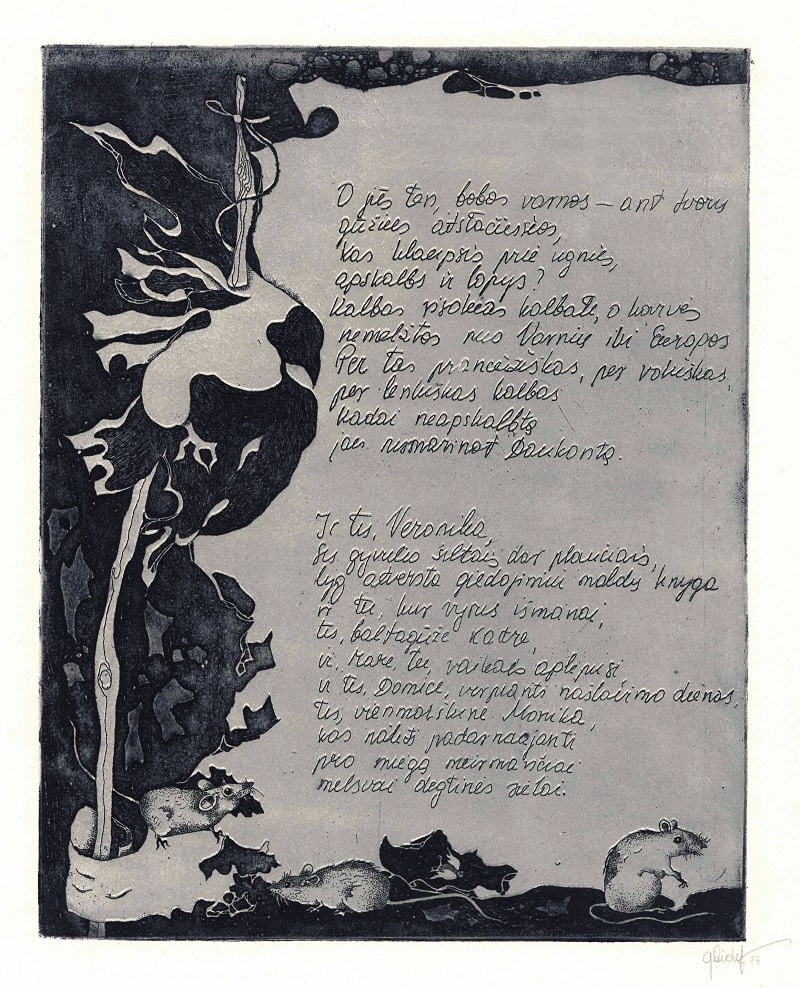 O jūs ten, bobos vamos — ant dvorų
gūžiees atstačiusios,
kas klaepsis prie ugnies,
apskalbs ir lopys?
Kalbos visokios kalbate, o karvės
nemelžtos nuo Varnių iki Europos
Per tas prancūziškas, per vokiškas,
per lenkiškas kalbas
kadai neapskalbtą
jau numarinot Daukantą.
Ir tu, Veronika,
su gyvulio šiltais dar plaučiais,
lyg atversta giedojimui maldų knyga
ir tu, kur vyrus išmanai,
tu, baltagūže Kotre,
ir, Mare, tu, vaikais aplipusi
ir tu, Domice, verpianti našlavimo dienas,
tu, vienmarškinė Monika,
kas naktį padarnuojanti
pro miegą murmančiai
melsvai degtinės sielai.
77